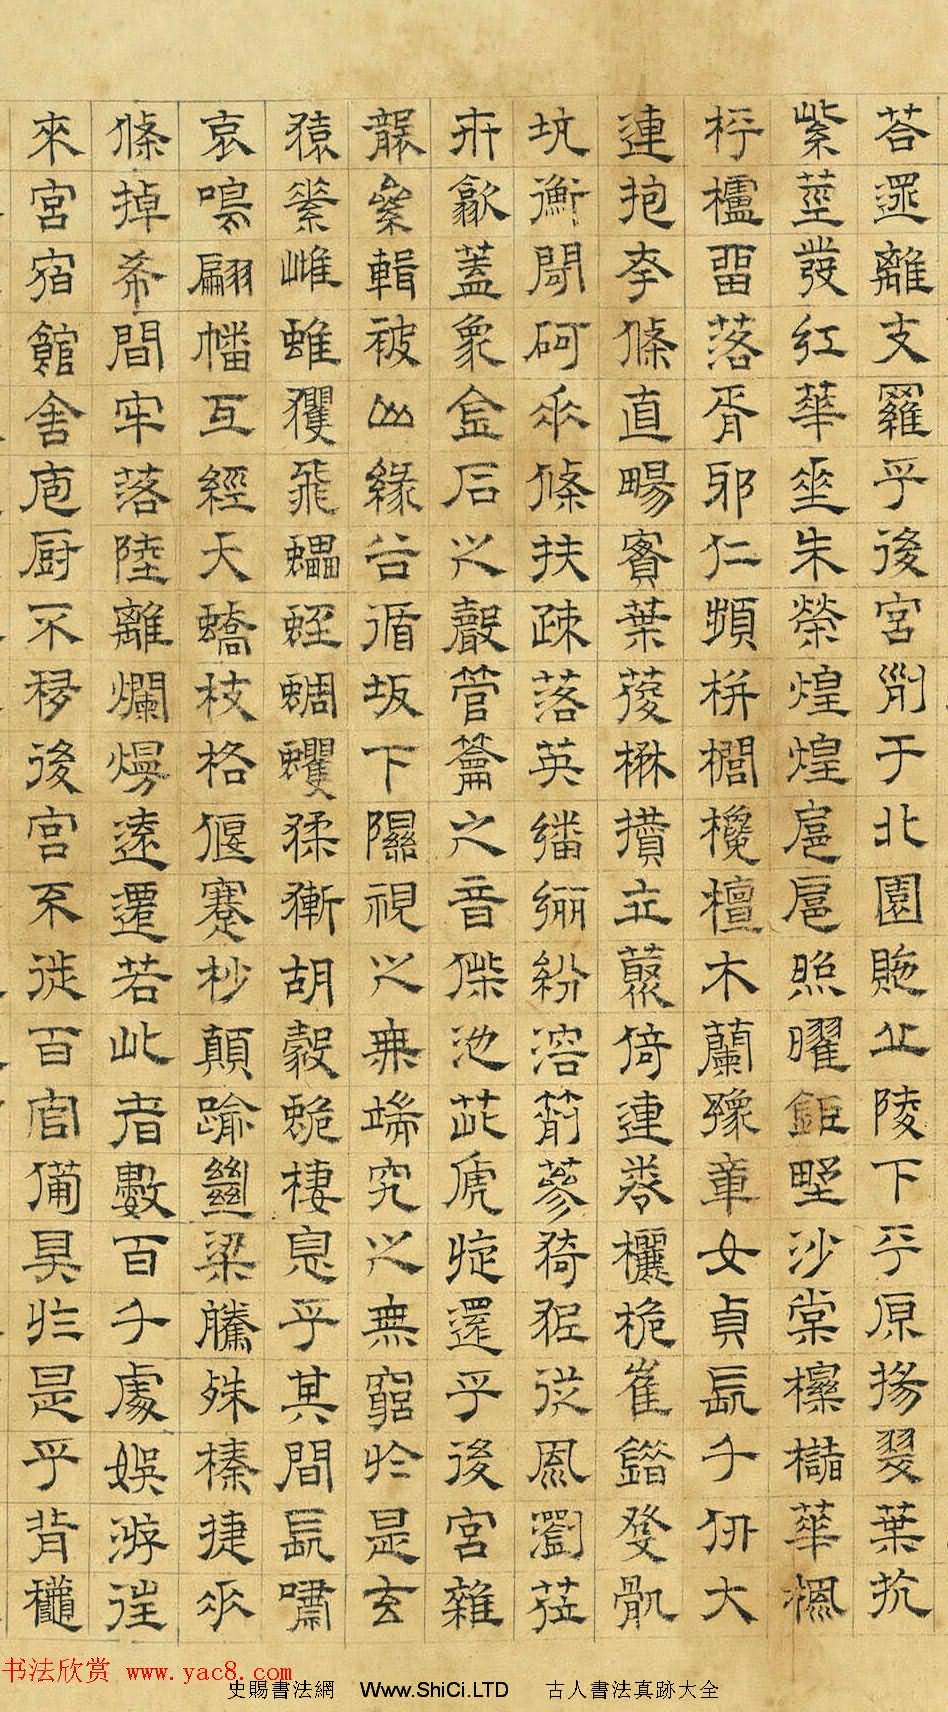 荅遝離支羅乎後宮列于北園貤丘陵下平原揚翠葉扤
紫莖發紅華垂朱榮煌煌扈扈照曜鉅野沙棠櫟櫧華楓
枰櫨留落胥邪仁頻栟櫚欃檀木蘭豫章女貞長千仞大
連抱夸條直暢實葉葰楙攢立叢倚連卷欐桅崔錯癹骫
坑衡閜砢垂條扶疎落英繙纚紛溶箾蔘猗狔從風瀏莅
卉歙蓋象金石之聲管籥之音偨池茈虒旋還乎後宮雜
襲絫輯被山緣谷循坂下隰視之無端究之無窮於是玄
猿素雌蜼玃飛蠝蛭蜩蠼猱獑胡豰蛫棲息乎其間長嘯
哀鳴翩幡互經天蟜枝格偃蹇杪顛踰絕梁騰殊榛捷垂
條掉希間牢落陸離爛熳遠遷若此者數百千處娛游往
來宮宿館舍庖厨不移後宮不徙百官備具於是乎背龝
书法欣赏 www.yac8.com
史賜書法網 Www.ShiCi.LTD 古人書法真跡大全